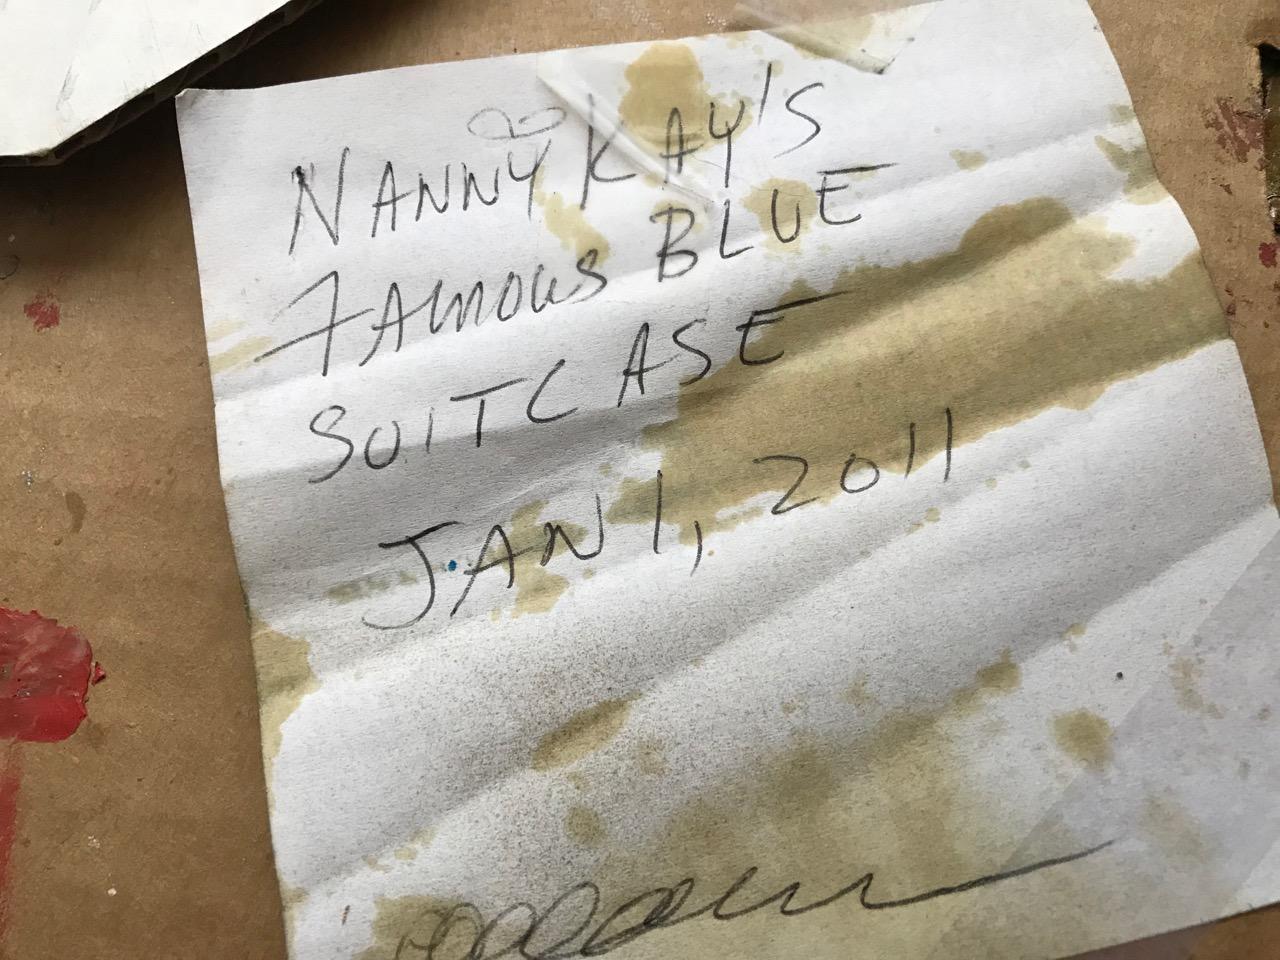 NANNY KAY'S
FAMOUS BLUE
SUITCASE
JAN 1, 2011